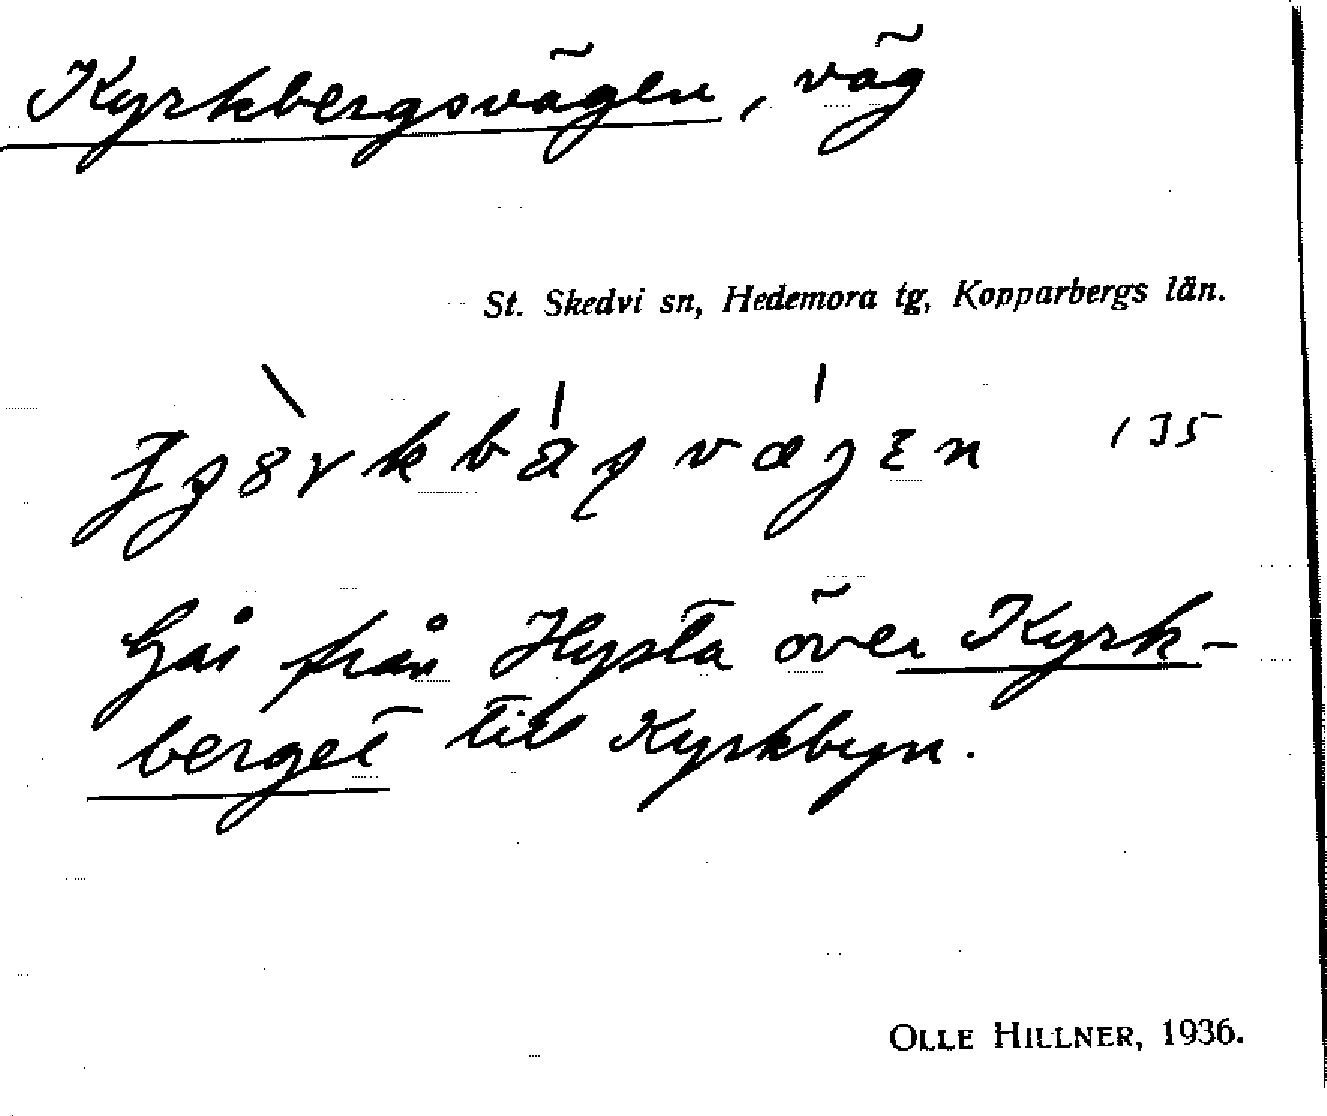 Kyrkbergsvägen, väg
St. Skedvi sn, Hedemora tg, Kopparbergs län.
135
Går från Hysta över Kyrk-
berget till Kyrkbyn.
OLLE HILLNER, 1936.